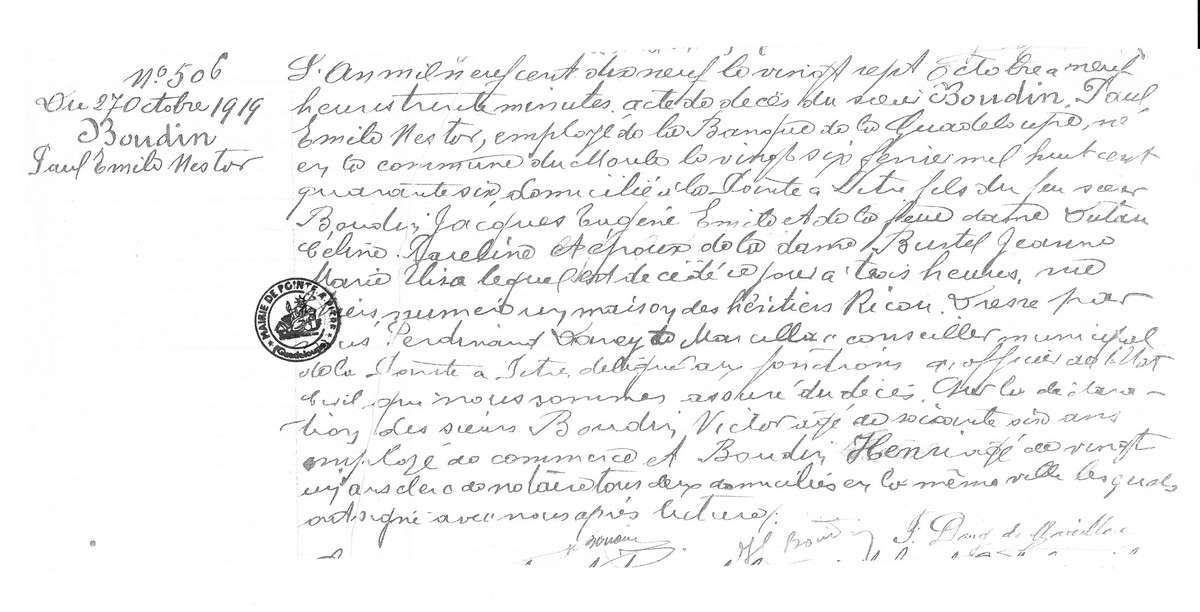 N° 506
Du 27 Octobre 1919
Boudin
Paul Emile Nestor
L'An mil neuf cent dix neuf le vingt sept Octobre à neuf
heures trente minutes, acte de décès du sieur Boudin, Paul
Emile Nestor, employé de la Banque de la Guadeloupe, né
en la commune du Moule le vingt six février mil huit cent
quarante six, domicilié à la Pointe à Pitre fils du feu sieur
Boudin Jacques Eugène Emile et de la feue dame
Celine Pauline et époux de la dame Burtel Jeanne
Marie Elisa lequel est décédé ce jour à trois heures, rue
numéro un maison des héritiers Ricou. Dressé par
nous Ferdinand Davey de Marcillac conseiller municipal
de la Pointe à Pitre, délégué aux fonctions d'officier de l'Etat
Civil, qui nous sommes assuré du décès. Sur la déclara-
tion des sieurs Boudin Victor âgé de soixante six ans
employé de commerce et Boudin Henri âgé de vingt
un ans clerc de notaire tous deux domiciliés en la même ville lesquels
ont signé avec nous après lecture.
V. Boudin H. Boudin F. Davey de Marcillac
MAIRIE DE POINTE-A-PITRE
(Guadeloupe)